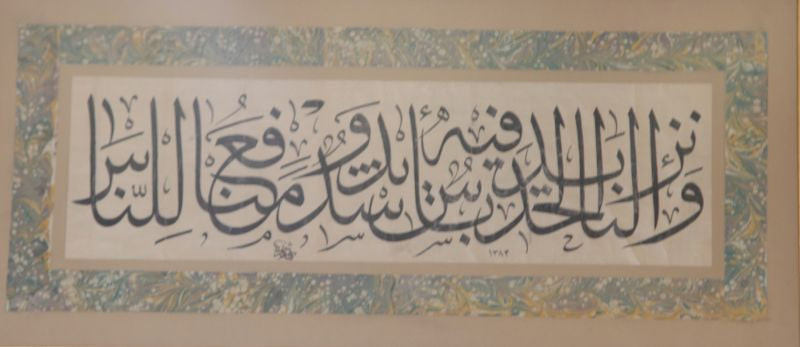 وانزلنا الحديد فيه بأس شديد ومنافع للناس
١٣٨٣